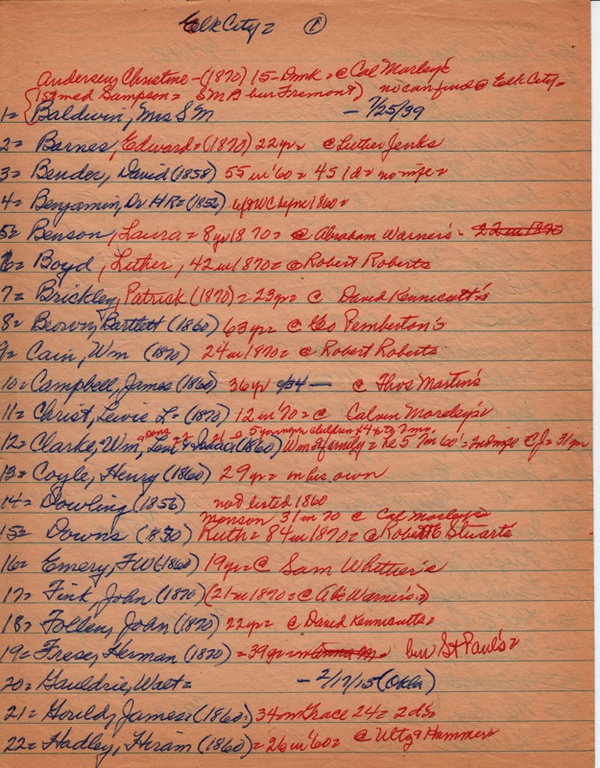 Elk City = ①
Andersen, Christine - (1870) 15 - Dmk = @ Cal Morley's
(1st med Sampson = S M B bur Fremont) no can find @ Elk City -
1 = Baldwin, Mrs S M - 7/25/39
2 = Barnes, Edward = (1870) 22 yr = @ Luther Jenks
3 = Bender, David (1858) 55 in '60 = 45 Ida = no mfe =
4 = Benjamin, Dr H R = (1856) 1860 =
5 = Benson, Laura = 8 yr 1870 = @ Abraham Warner's - 22 in 1870
6 = Boyd, Luther, 42 in 1870 = @ Robert Roberts
7 = Brickley, Patrick (1870) = 23 yr = @ David Kennicott's
8 = Brown, Bartlett (1860) 63 yr = @ Geo Pemberton's
9 = Cain, Wm (1870) 24 in 1870 = @ Robert Roberts
10 = Campbell, James (1860) 36 yr - @ Thos Martin's
11 = Christ, Lewis L. (1870) 12 in '70 = @ Calvin Moreley's
5 younger children
12 = Clarke, Wm, Levi & (1860) Wm & family = he 57 in 60 = 2nd mfe C J = 31 yr
13 = Coyle, Henry (1860) 29 yr = in his own
14 = Dowling (1856) not listed 1860
Monson 31 in 70 @ Cal Morley's
15 = Downs (1870) Ruth = 84 in 1870 = @ Robert E Stuart's
16 = Emery, F W (1860) 19 yr = @ Sam Whittier's
17 = Fink, John (1870) (21 in 1870 = @ Abe Warner's =)
18 = Follen, John (1870) 22 yr = @ David Kennicutts =
19 = Frese, Herman (1870) = 39 yr = bur St Paul's =
20 = Gauldrie, Walt = - 2/17/15 (Okla)
21 = Gould, James = (1860) 34 m Grace 24 = 2 d's =
22 = Hadley, Hiram (1860) = 26 in '60 = @ Hammer